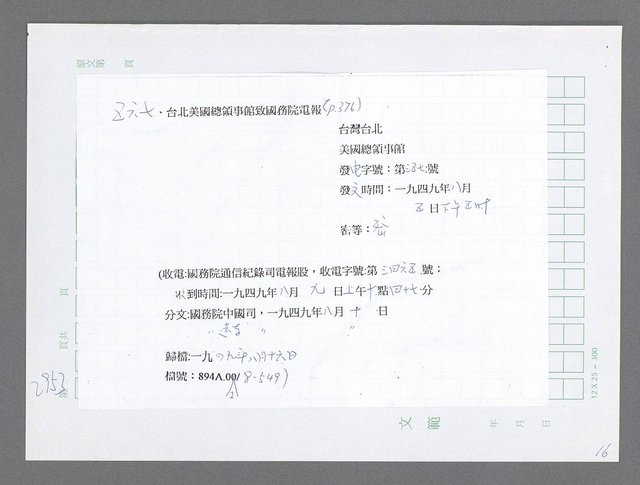 原文第 頁
五六七、台北美國總領事館致國務院電報(p.376)
台灣台北
美國總領事館
發电字號：第三五七號
發文時間：一九四九年八月
五日下午五時
密等：密
(收電:國務院通信紀錄司電報股，收電字號:第三四六五號；
收到時間:一九四九年八月 九 日上午十點四十七分
分文:國務院中國司，一九四九年八月 十 日
歸檔:一九四九年八月十六日
檔號：894A.00/8-549)
頁
頁共
第
2953
文 範
年 月 日
12 X 25 = 300
16